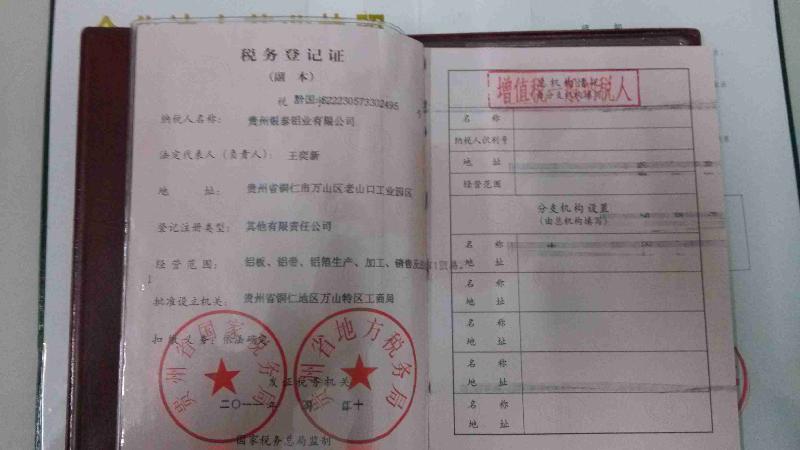 税务登记证
(副 本)
税 黔国 522230573302495
纳税人名称： 贵州银泰铝业有限公司
法定代表人（负责人）： 王奕新
地 址： 贵州省铜仁市万山区老山口工业园区
登记注册类型： 其他有限责任公司
经营范围： 铝板、铝卷、铝箔生产、加工、销售及 贸易。
批准设立机关： 贵州省铜仁地区万山特区工商局
扣缴义务：依法确定
贵州省国家税务局
贵州省地方税务局
发证税务机关
二〇一一年 月 十
国家税务总局监制
总机构情况
（由分支机构填写）
增值税一般纳税人
名 称
纳税人识别号
地 址
经营范围
分支机构设置
（由总机构填写）
名 称
地 址
名 称
地 址
名 称
地 址
名 称
地 址
名 称
地 址